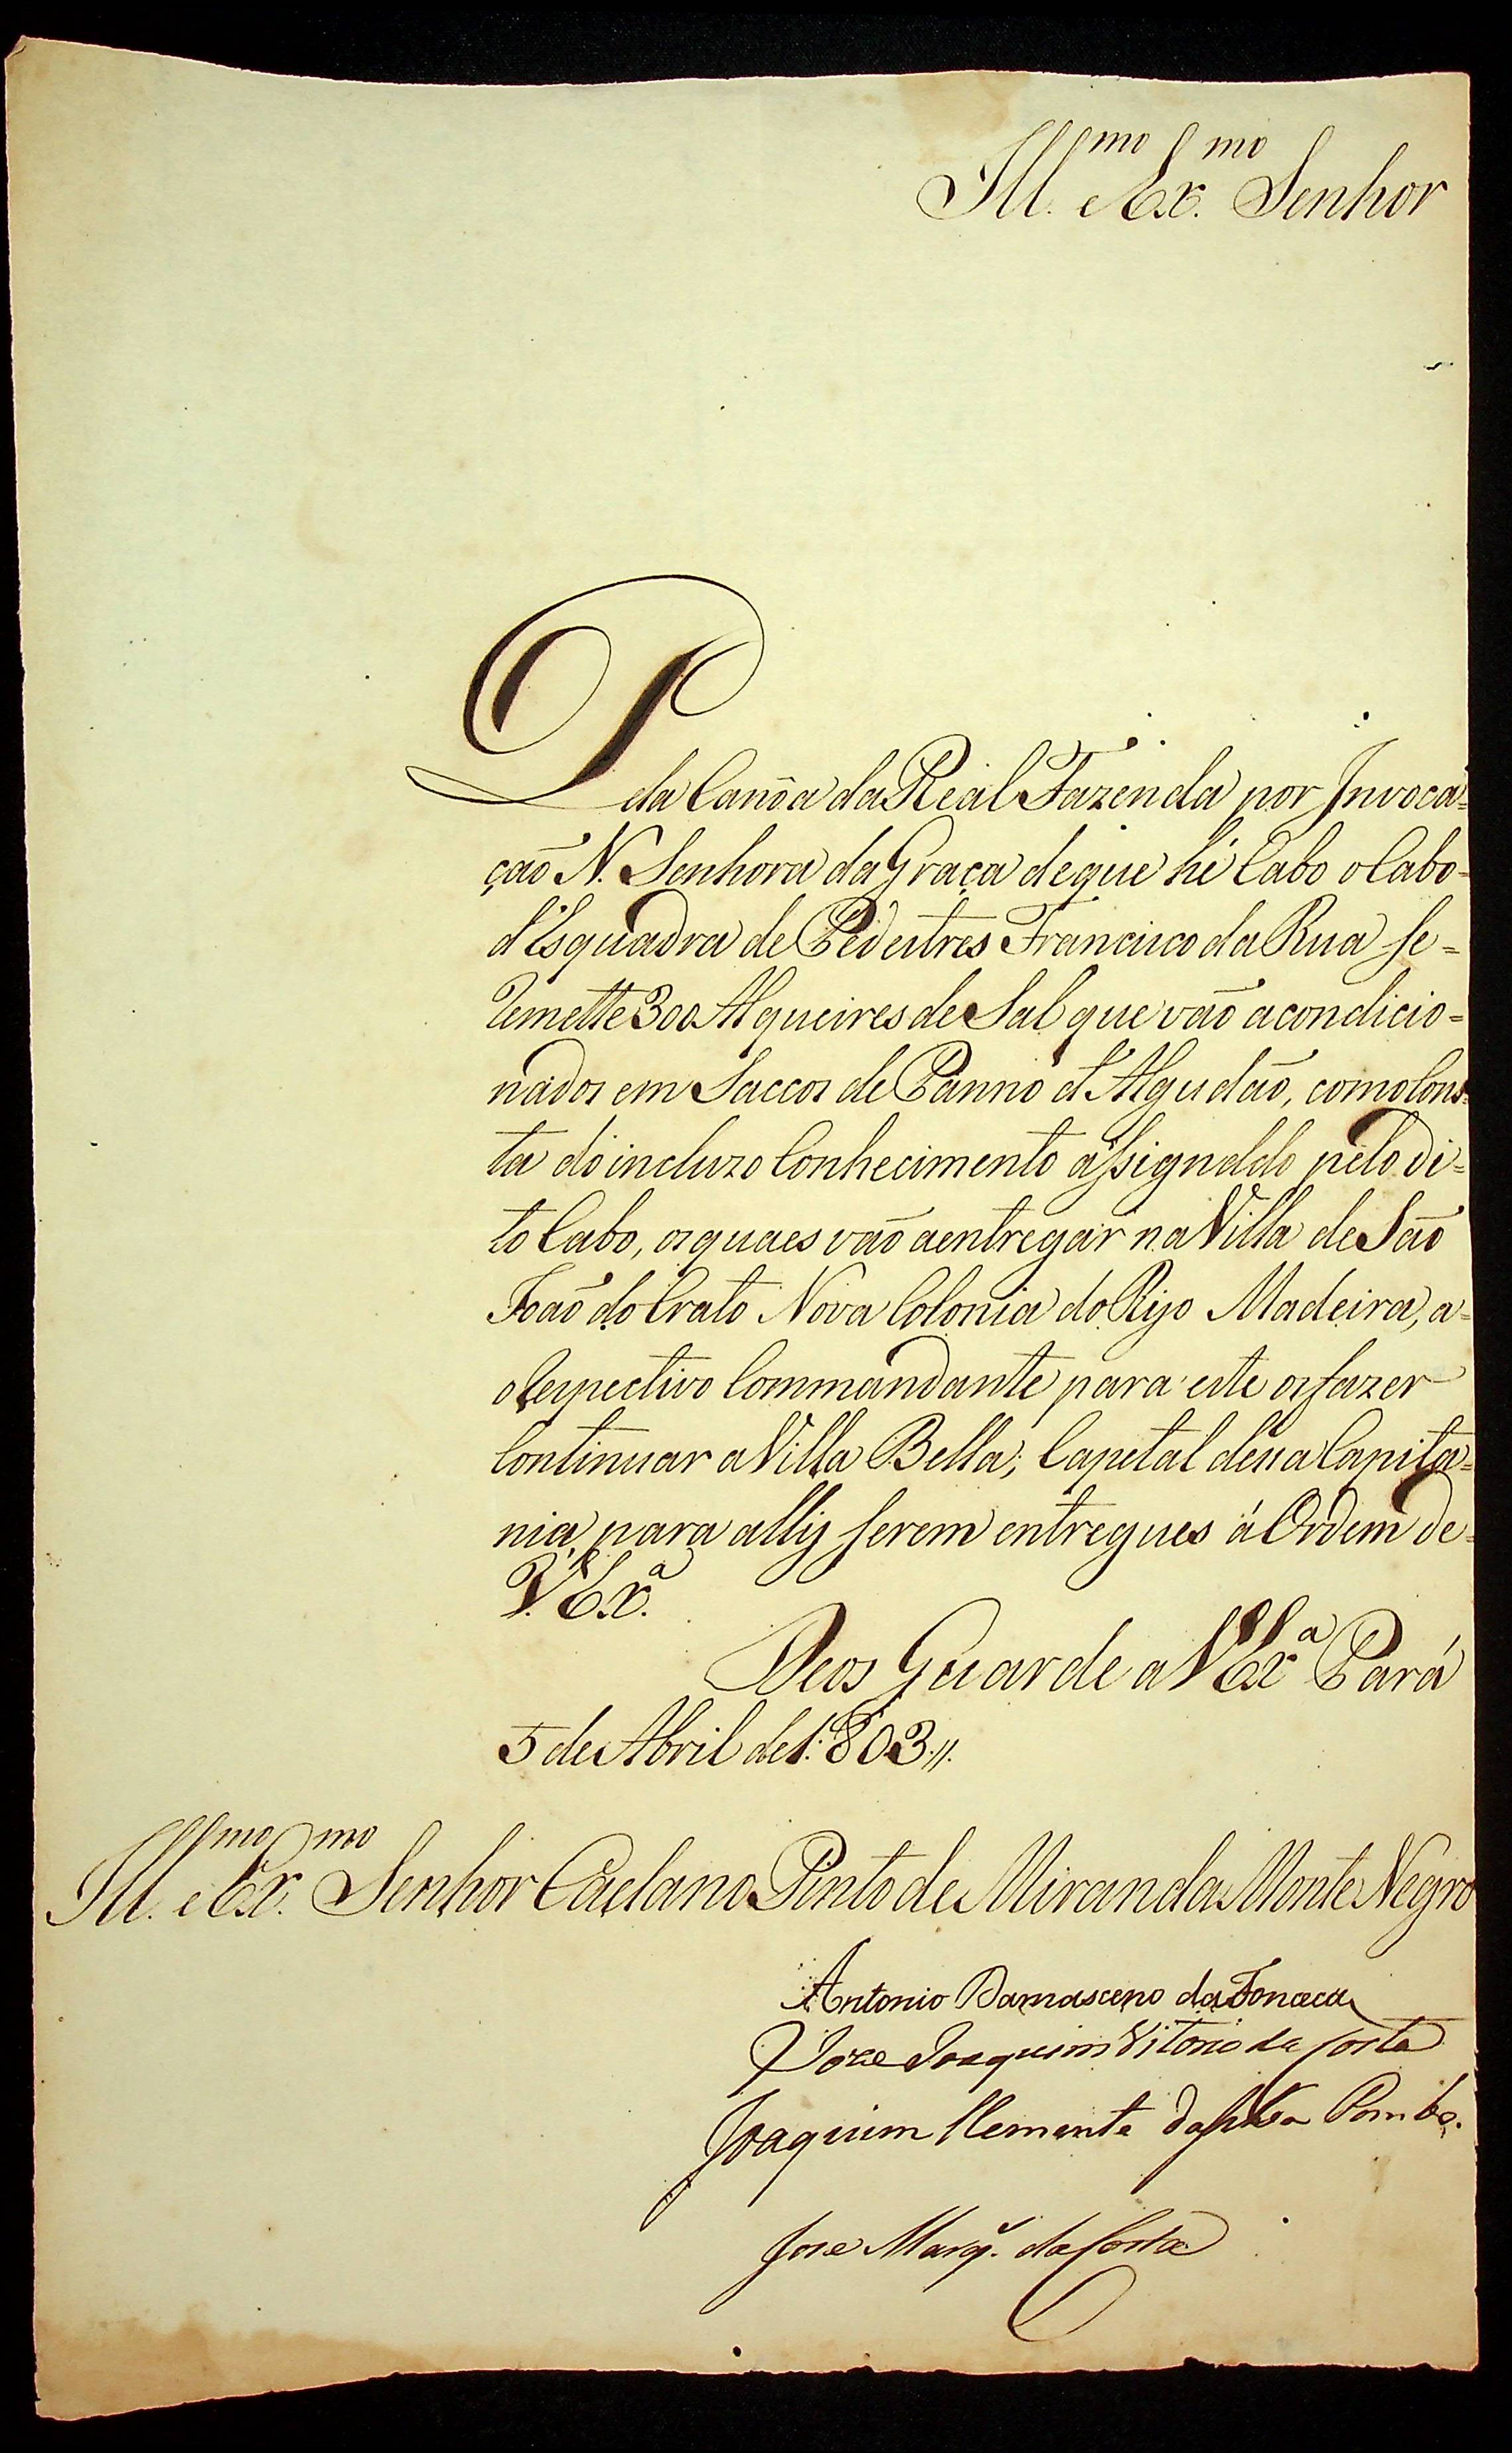 Ill.mo e Ex.mo Senhor
Pela Canôa da Real Fazenda por Invoca=
ção N. Senhora da Graça de que hé Cabo o Cabo=
d'Esquadra de Pedestres Francisco da Rua se=
remette 300 Alqueires de Sal que vaõ acondicio=
nados em Saccos de Panno d'Algudaõ, como Cons=
ta do incluzo Conhecimento assignado pelo di=
to Cabo, os quaes vaõ a entregar na Villa de Saõ
Joaõ do Crato Nova Colonia do Rijo Madeira, a=
o respectivo Commandante para este os fazer
Continuar a Villa Bella, Capetal dessa Capita=
nia, para ally serem entregues á Ordem de=
V. Ex.a
Deos Guarde a V Ex.a Pará
5 de Abril de 1:803.//.
Ill.mo e Ex.mo Senhor Caetano Pinto de Miranda Monte Negro
Antonio Damasceno da Fonceca
Joze Joaquim Vitorio da Costa
Joaquim Clemente da Silva Pombo.
Joze Marq.s da Costa